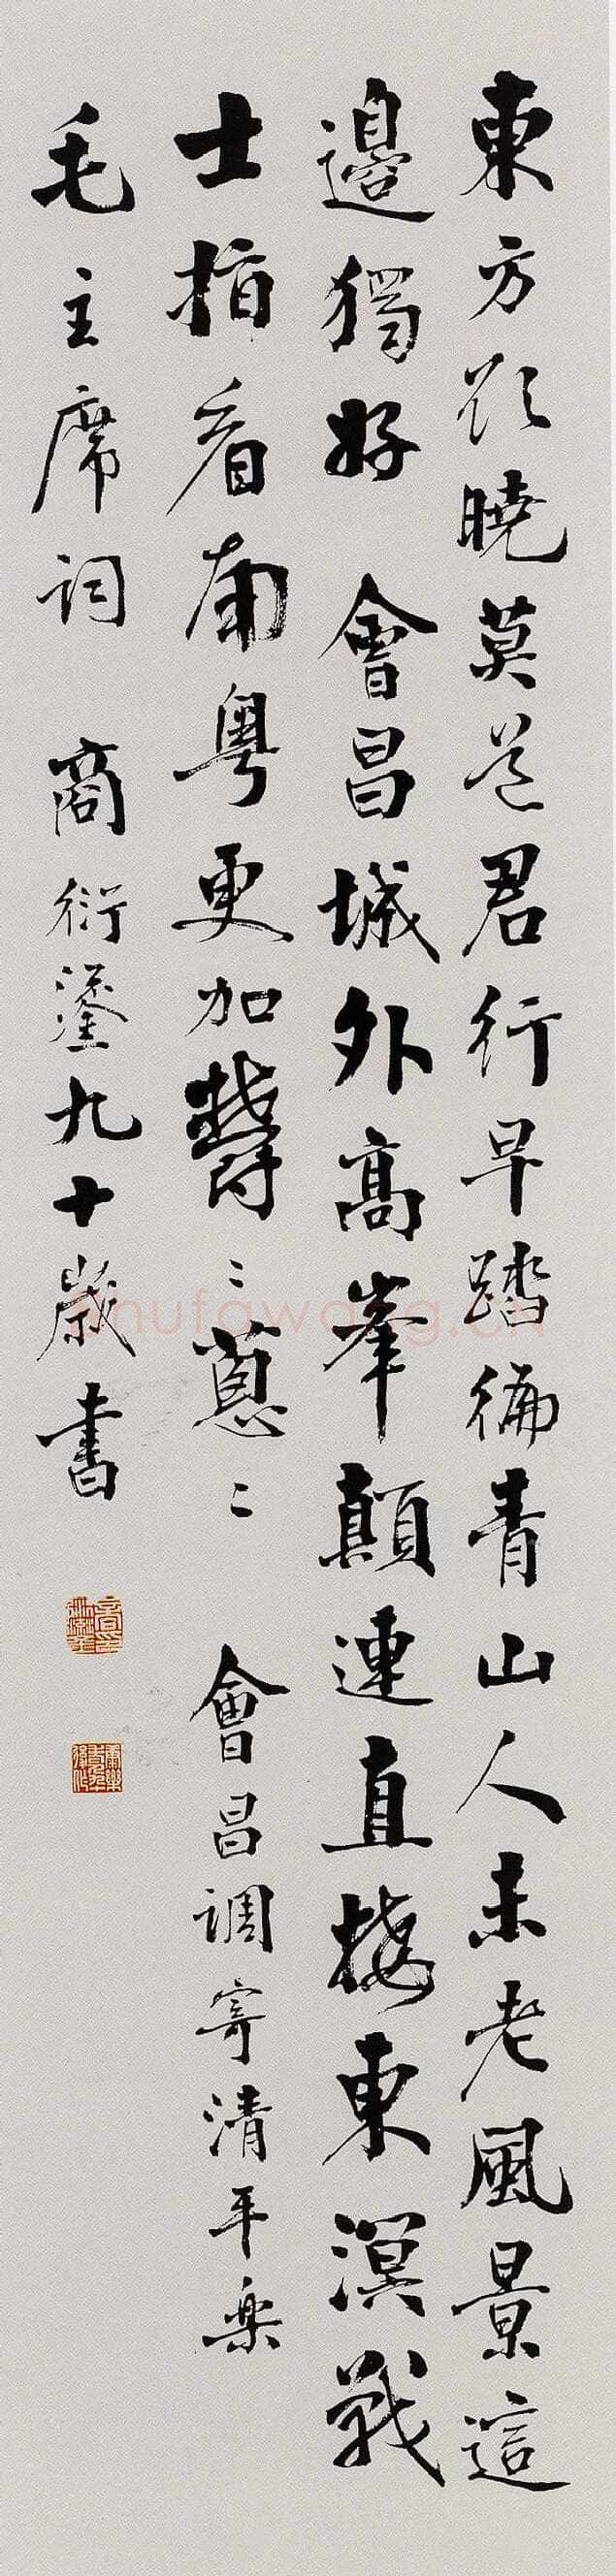 東方欲曉莫道君行早踏徧青山人未老風景這
邊獨好 會昌城外高峯顛連直接東溟戰
士指看南粵更加鬱〻蔥〻 會昌調寄清平樂
毛主席詞 商衍鎏九十歲書
shufawang.cn